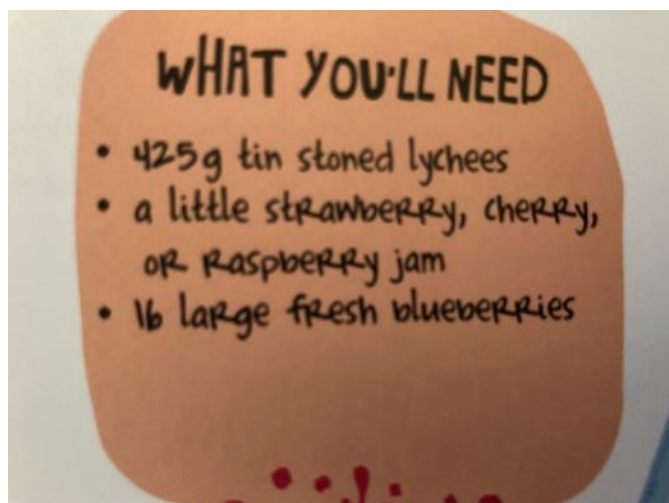 WHAT YOU'LL NEED
• 425g tin stoned lychees
• a little strawberry, cherry,
or raspberry jam
• 16 large fresh blueberries